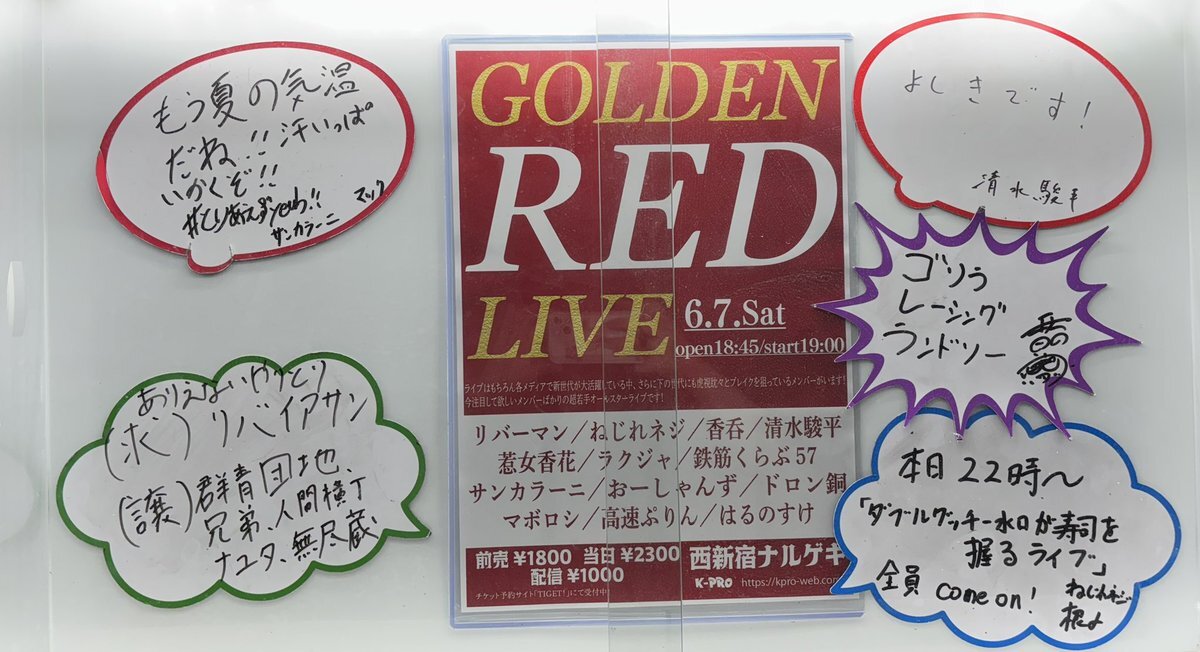 もう夏の気温
だね!!汗いっぱ
いかくぞ!!
#とりあえずyeah!!
サンカラーニ
マック
ありえないやりとり
(求)リバイアサン
(譲)群青団地、
兄弟、人間横丁
ナユタ、無尽蔵
GOLDEN
RED
LIVE
6.7.Sat
open18:45/start19:00
ライブはもちろん各メディアで新世代が大活躍している中、さらに下の世代にも虎視眈々とブレイクを狙っているメンバーがいます!
今注目して欲しいメンバーばかりの超若手オールスターライブです!
リバーマン/ねじれネジ/香呑/清水駿平
惹女香花/ラクジャ/鉄筋くらぶ57
サンカラーニ/おーしゃんず/ドロン銅
マボロシ/高速ぷりん/はるのすけ
前売 ¥1800 当日 ¥2300
配信 ¥1000
チケット予約サイト「TIGET!」にて受付中!
西新宿ナルゲキ
K-PRO https://kpro-web.com
よしきです!
清水駿平
ゴリラ
レーシング
ランドソー
本日22時〜
「ダブルグッチー水口が寿司を
握るライブ」
全員 come on!
ねじれネジ